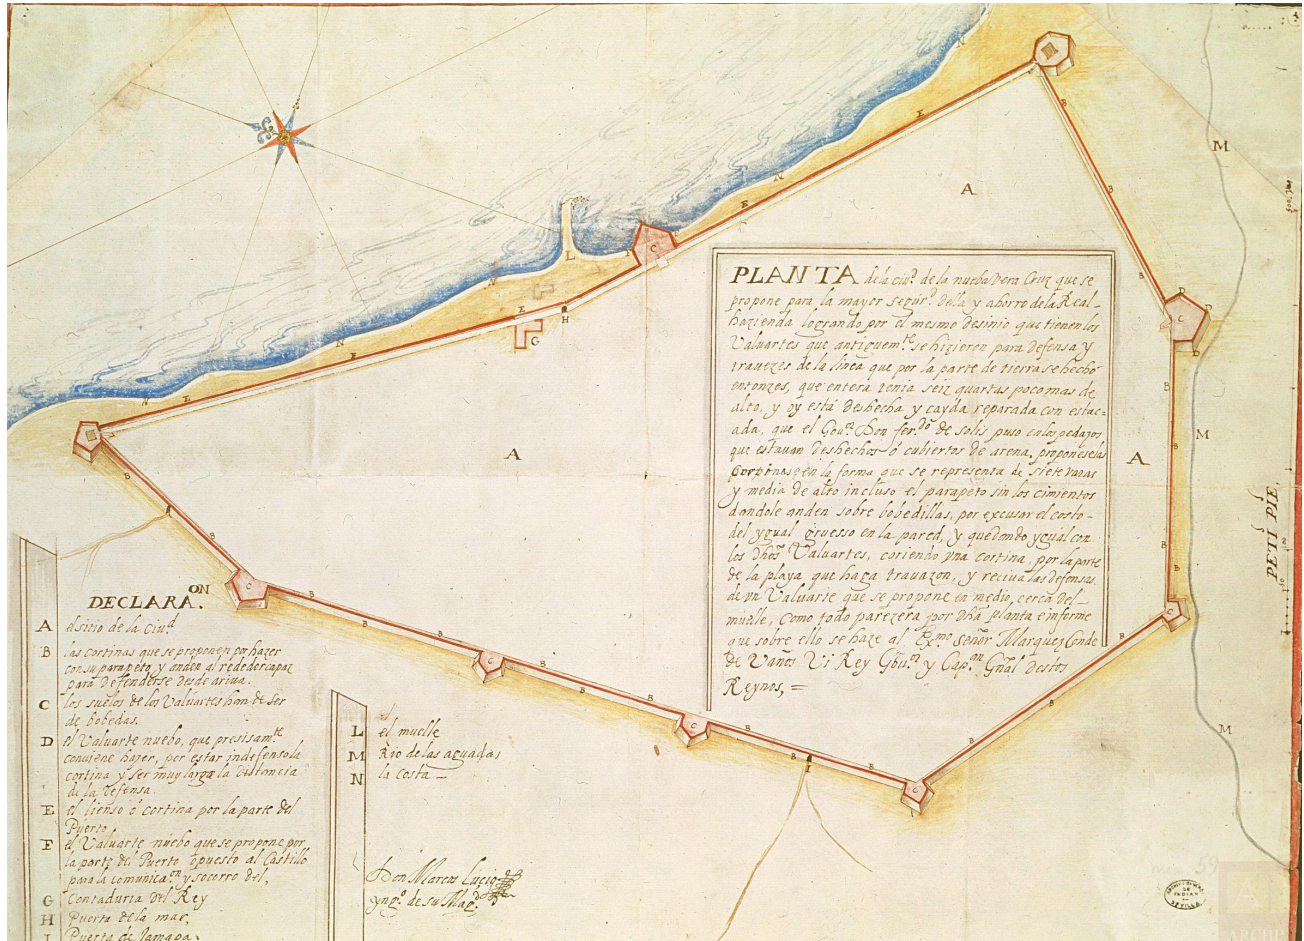 PLANTA de la ciu.d de la nueba Vera Cruz que se
propone para la mayor segur.d dela y ahorro de la Real
hazienda logrando por el mesmo desinio que tienen los
Valuartes que antiguem.te se hizieron para defensa y
travezes de la linea que por la parte de tierra se hecho
entonzes, que entera tenia seis quartas poco mas de
alto, y oy está deshecha y cayda reparada con estac-
ada, que el Gou.or Don fer.do de Solis puso en los pedazos
que estauan deshechos ó cubiertos de arena, proponeselas
en la forma que se representa de siete varas
y media de alto incluso el parapeto sin los cimientos
dandole anden sobre bobedillas, por excusar el costo
del ygual gruesso en la pared, y quedando ygual con
los dhos Valuartes, coriendo vna cortina por la parte
de la playa que haga trauazon, y reciva las defensas
de vn Valuarte que se propone en medio, cerca del
muelle, como todo parezera por dha planta e informe
que sobre ello se haze al Ex.mo Señor Marquez Conde
de Vaños Vi Rey Gou.or y Cap.an Gñal destos
Reynos, =
PETI PIE,
DECLARA.ON
A el sitio de la Ciu.d
B las Cortinas que se proponen por hazer
con su parapeto y anden al rededor capaz
para defenderse desde ariua.
C los suelos de los Valuartes han de ser
de bobedas.
D el Valuarte nuebo, que presisam.te
conuiene hazer, por estar indefensa la
cortina y ser muy larga la distancia
de la defensa.
E el lienso ó cortina por la parte del
Puerto
F el Valuarte nuebo que se propone por
la parte del Puerto opuesto al Castillo
para la comunica.on y socorro del,
G Contaduria del Rey
H Puerta de la mar,
I Puerta de Jamapa.
L el muelle
M Rio de las aguadas
N la Costa
Don Marcos Lucio
yng.o de su Mag.d
59
ARCHIVO